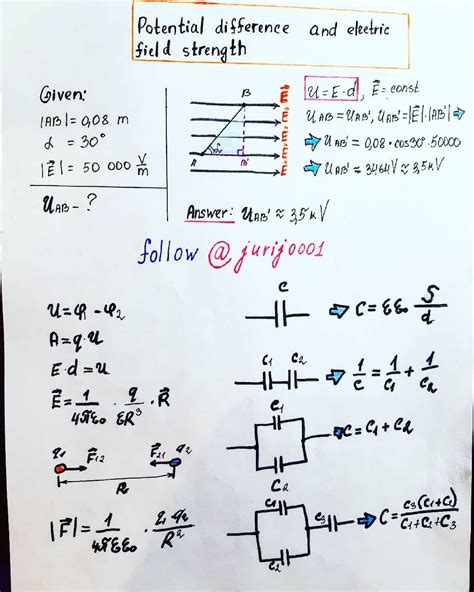 Potential difference and electric
field strength
Given:
|AB| = 0,08 m
α = 30°
|E⃗| = 50 000 V/m
U_AB - ?
B
A
α
B'
E⃗
E⃗
E⃗
E⃗
E⃗
U = E·d, E⃗ = const
U_AB = U_AB', U_AB' = |E⃗|·|AB'| ⇒
⇒ U_AB' = 0,08·cos30°·50000
⇒ U_AB' ≈ 3464 V ≈ 3,5 kV
Answer: U_AB' ≈ 3,5 kV
follow @jurij0001
U = φ₁ - φ₂
A = q·U
E·d = U
E⃗ = 1/4πεε₀ · q/εR³ · R⃗
q₁ F⃗₁₂ F⃗₂₁ q₂
R
|F⃗| = 1/4πεε₀ · q₁ q₂/R²
C ⇒ C = εε₀ S/d
C₁ C₂ ⇒ 1/C = 1/C₁ + 1/C₂
C₁
C₂
⇒ C = C₁ + C₂
C₁
C₂
C₃ ⇒ C = C₃(C₁+C₂)/C₁+C₂+C₃